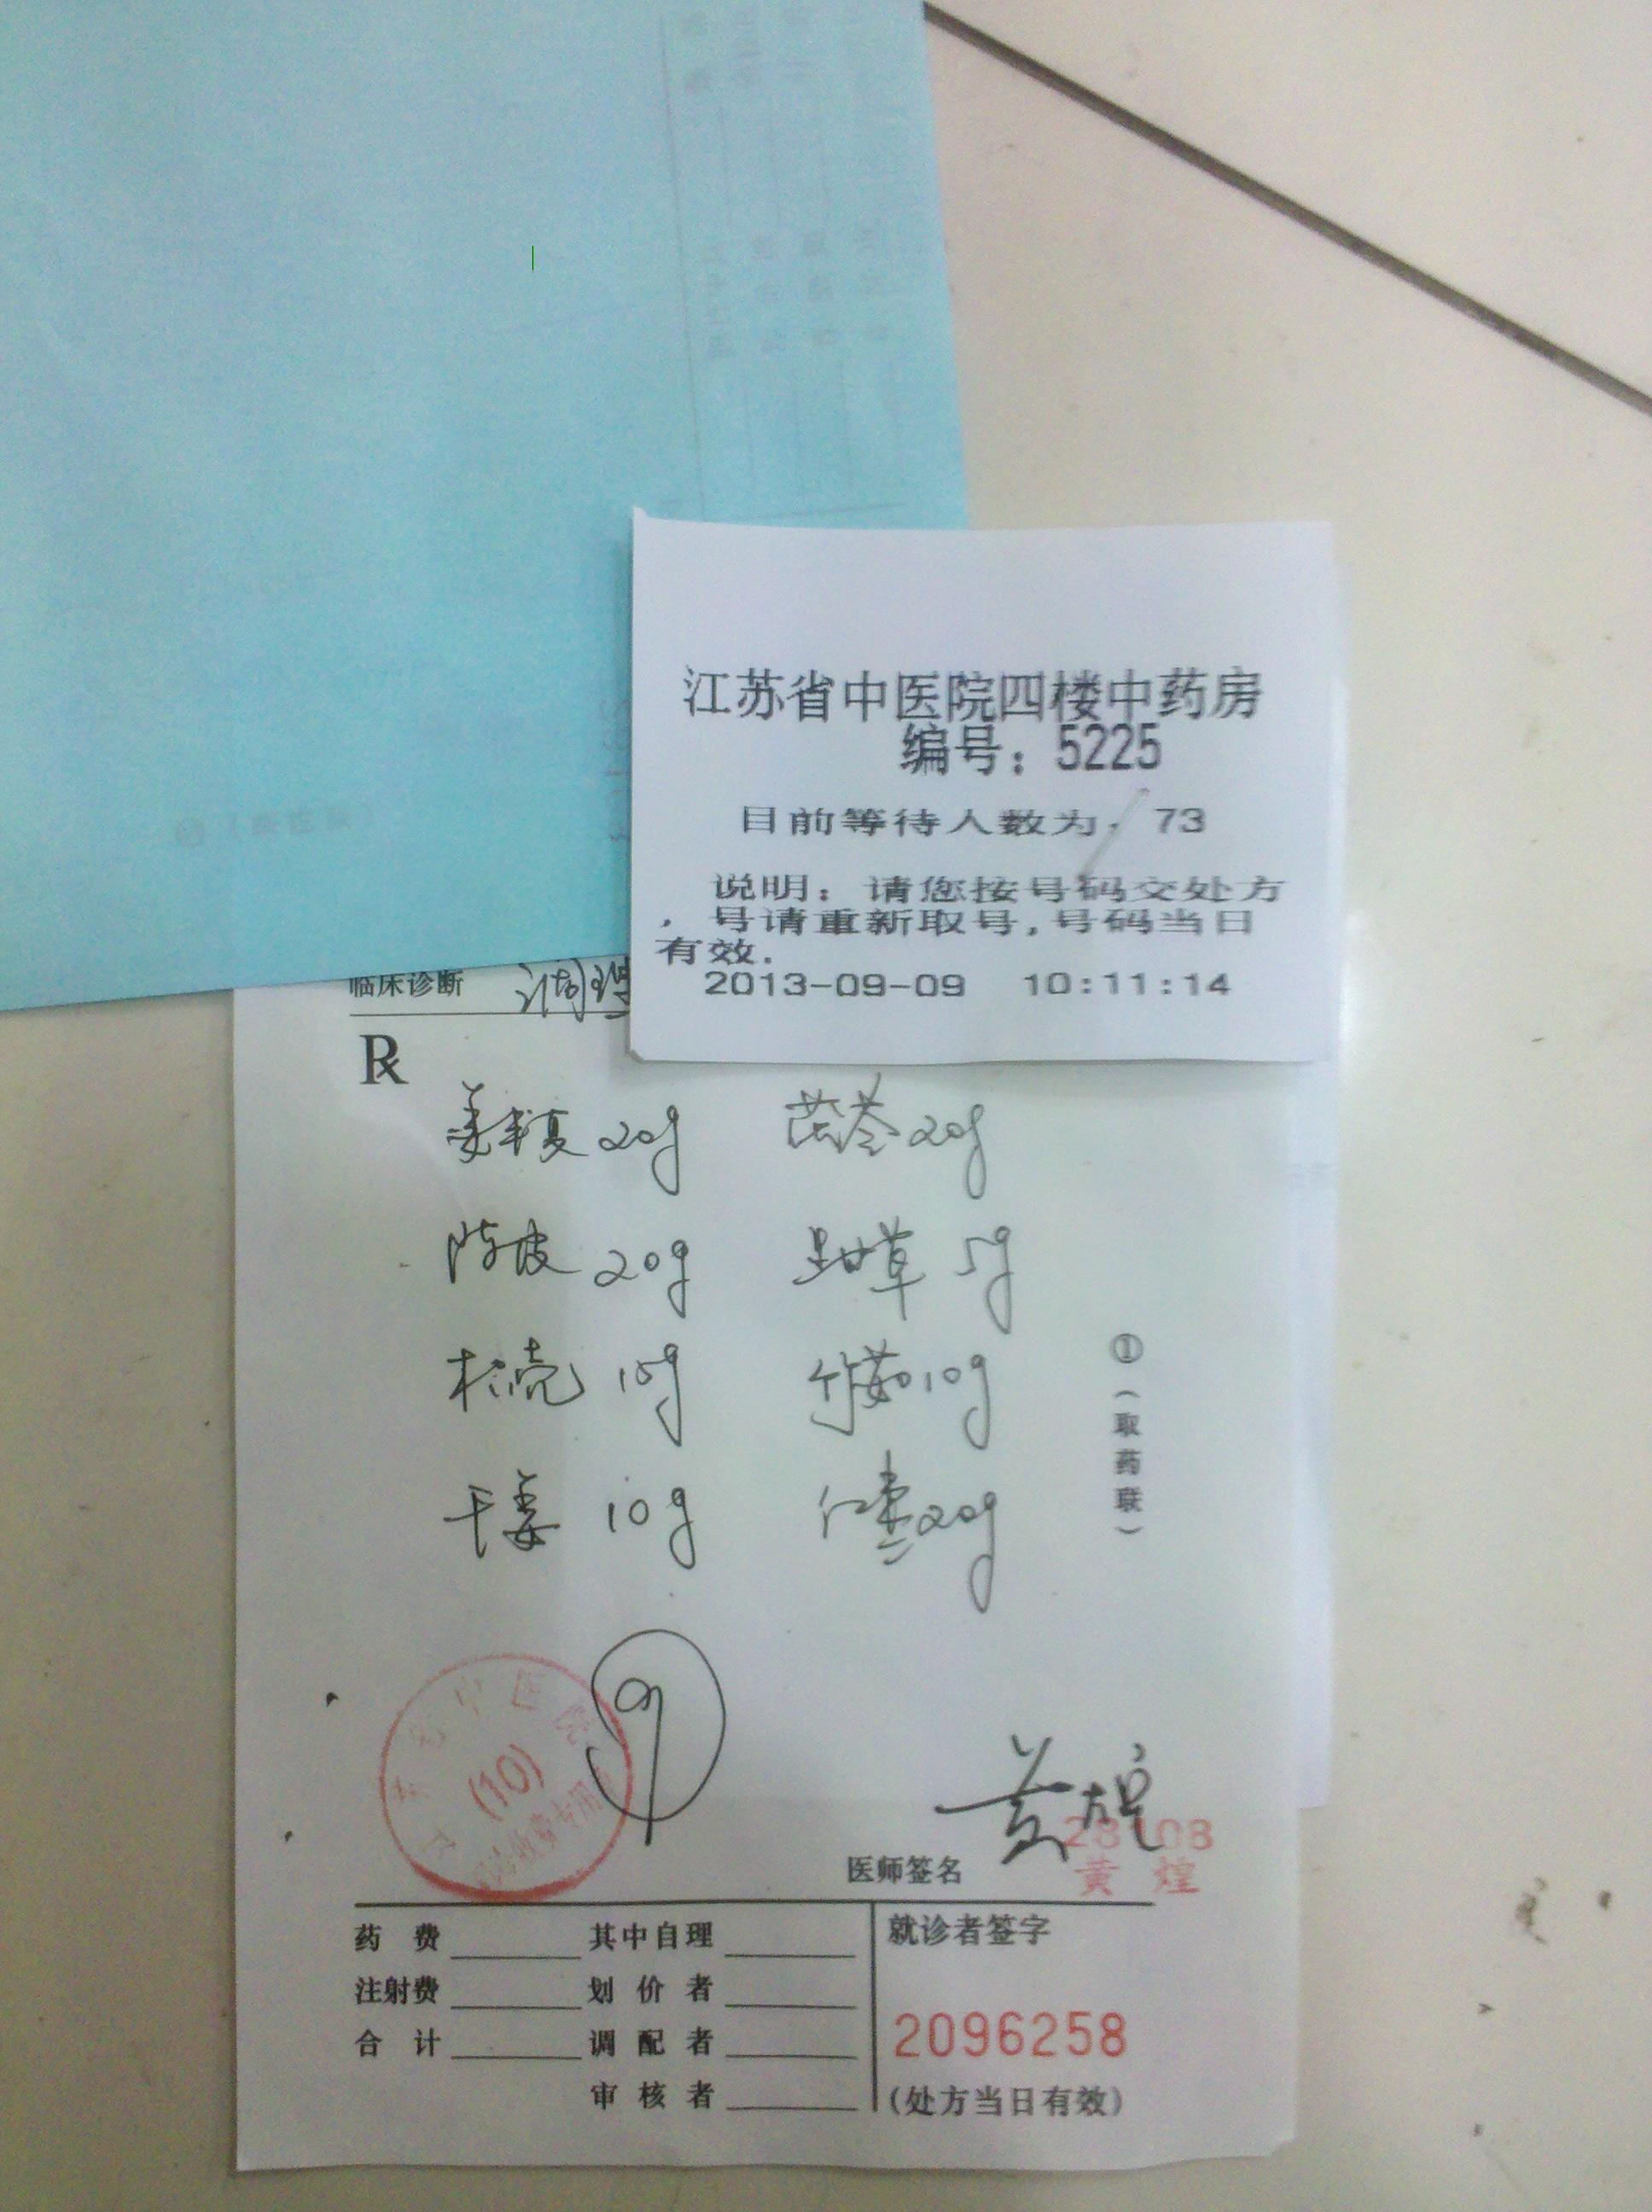 江苏省中医院四楼中药房
编号：5225
目前等待人数为：73
说明：请您按号码交处方
，号请重新取号,号码当日
有效.
2013-09-09 10:11:14
临床诊断
R
姜半夏 20g 茯苓 20g
陈皮 20g 生甘草 5g
枳壳 15g 竹茹 10g
干姜 10g 红枣 20g
①（取药联）
中医院
(10)
28108
黄煌
医师签名 黄煌
药费 其中自理 就诊者签字
注射费 划价者
2096258
合计 调配者
审核者 (处方当日有效)